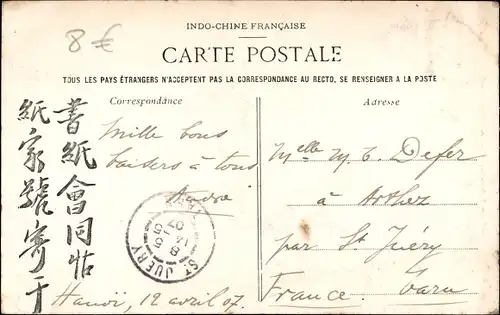 8 €
INDO-CHINE FRANÇAISE
CARTE POSTALE
TOUS LES PAYS ÉTRANGERS N'ACCEPTENT PAS LA CORRESPONDANCE AU RECTO, SE RENSEIGNER A LA POSTE
Correspondance
Adresse
Mille bons
baisers à tous
André
Hanoï, 12 avril 07.
書紙會同怗
紙家號寄于
ST JUERY
14 5
07
Melle M. T. Defer
à Arthez
par St Juéry
France. Tarn